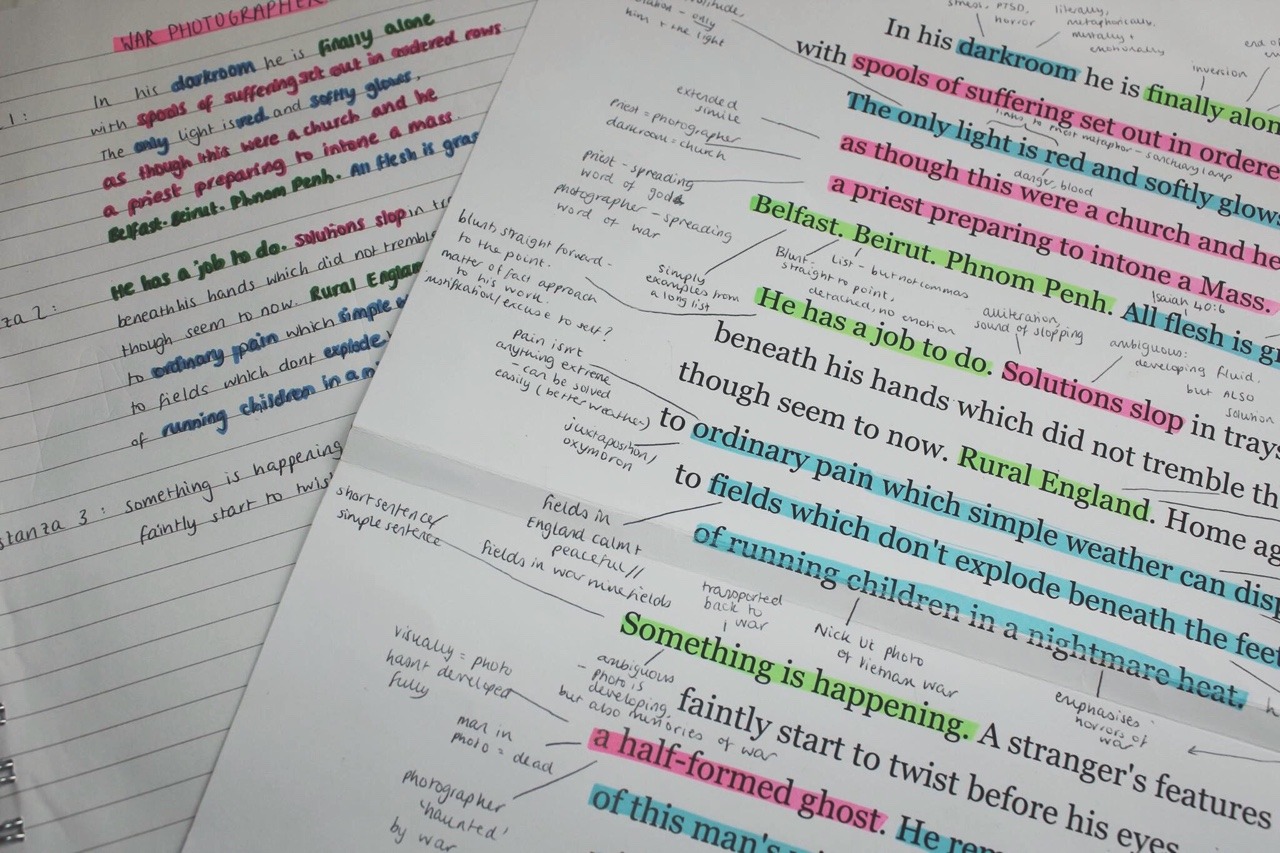 WAR PHOTOGRAPHER
1 :
In his darkroom he is finally alone
with spools of suffering set out in ordered rows.
The only light is red and softly glows,
as though this were a church and he
a priest preparing to intone a mass.
Belfast. Beirut. Phnom Penh. All flesh is gras
za 2 :
He has a job to do. Solutions slop in tr
beneath his hands which did not tremble
though seem to now. Rural Englan
to ordinary pain which simple w
to fields which dont explode
of running children in a n
stanza 3 : something is happening
faintly start to twis
In his darkroom he is finally alon
with spools of suffering set out in ordere
The only light is red and softly glows
as though this were a church and he
a priest preparing to intone a Mass.
Belfast. Beirut. Phnom Penh. All flesh is gr
He has a job to do. Solutions slop in trays
beneath his hands which did not tremble th
though seem to now. Rural England. Home ag
to ordinary pain which simple weather can disp
to fields which don't explode beneath the feet
of running children in a nightmare heat.
Something is happening. A stranger's features
faintly start to twist before his eyes
a half-formed ghost. He rem
of this man's
only
him + the light
stress, PTSD,
horror
literally,
metaphorically.
mentally +
emotionally
inversion
end of
extended
simile
priest = photographer
darkroom = church
priest - spreading
word of god
photographer - spreading
word of war
links to priest metaphor - sanctuary lamp
danger, blood
blunt, straight forward -
to the point.
matter of fact approach
to his work.
justification/excuse to self?
simply
examples from
a long list
Blunt -
straight to point,
detached, no emotion
List - but not commas
Isaiah 40:6
alliteration,
sound of slopping
ambiguous:
developing fluid.
but ALSO
solution
pain isn't
anything extreme
- can be solved
easily (better weather)
juxtaposition/
oxymoron
fields in
England calm +
peaceful //
fields in war minefields
short sentence/
simple sentence
transported
back to
war
Nick Ut photo
of Vietnam war
emphasises
horrors of
war
visually = photo
hasnt developed
fully
ambiguous
- photo is
developing,
but also memories of war
man in
photo = dead
photographer
'haunted'
by war